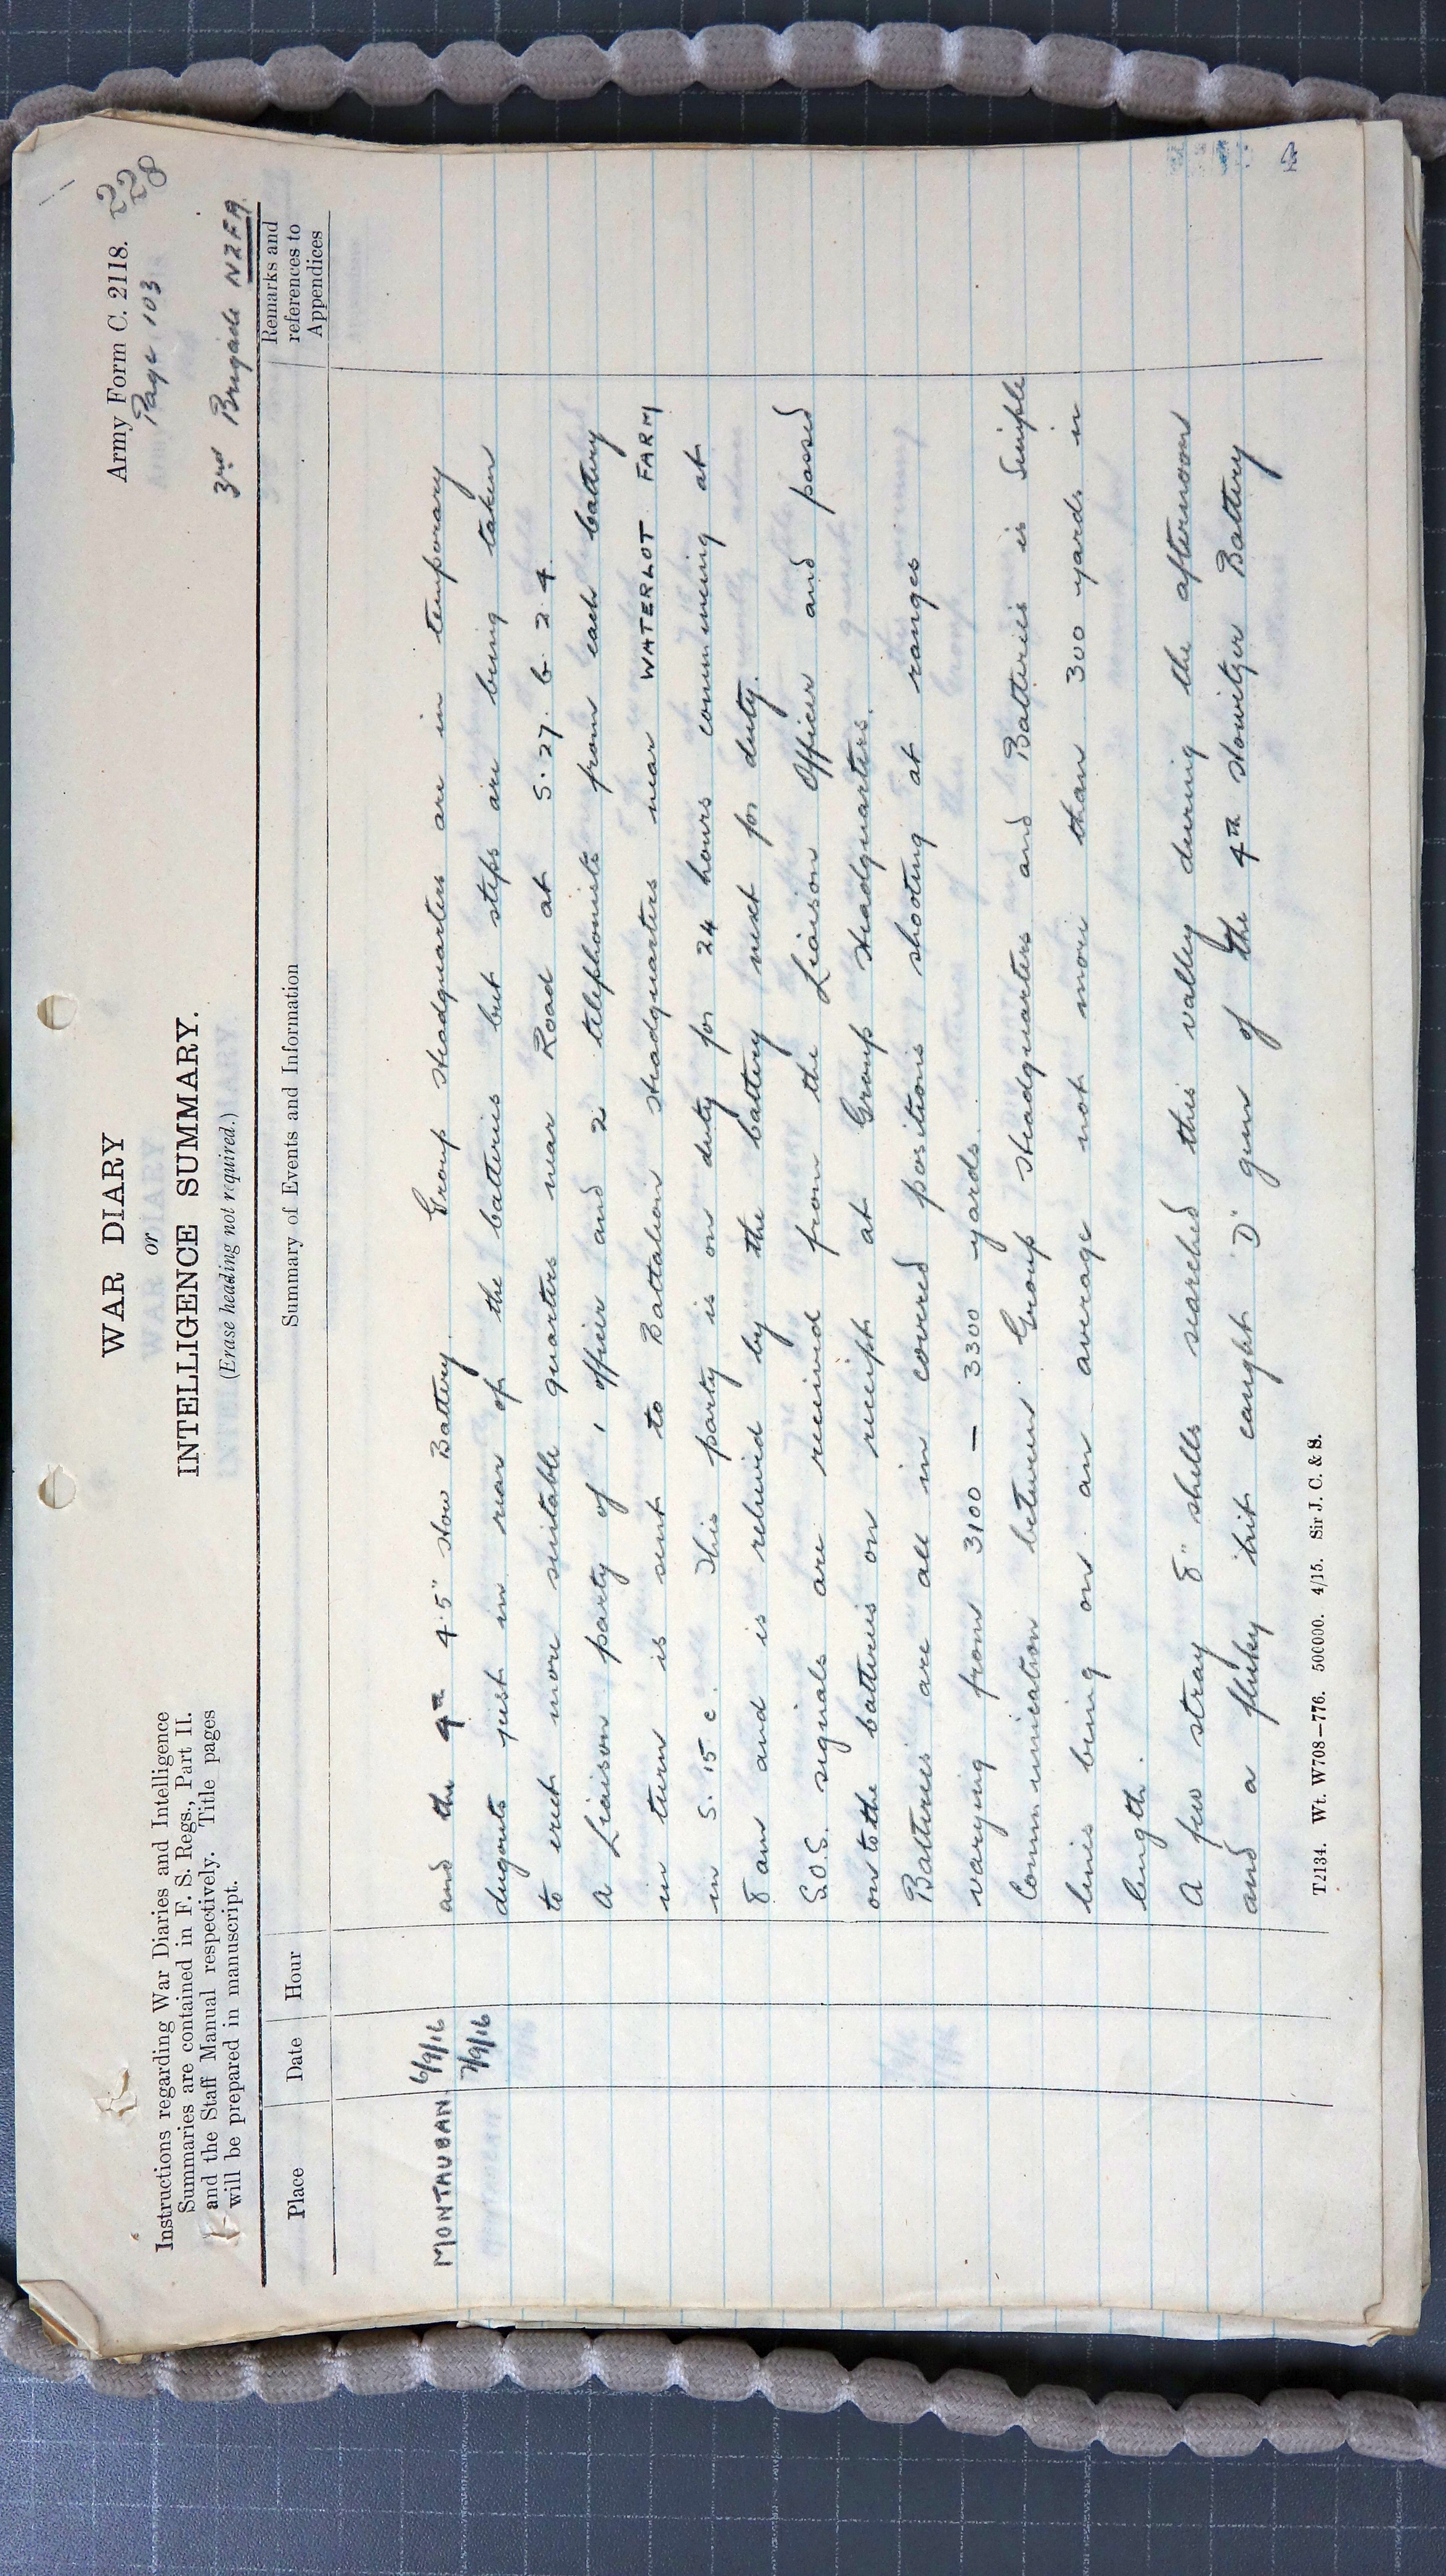 Army Form C. 2118.
228
Page 103
WAR DIARY
or
INTELLIGENCE SUMMARY.
(Erase heading not required.)
3rd Brigade NZFA.
Instructions regarding War Diaries and Intelligence
Summaries are contained in F. S. Regs., Part II.
and the Staff Manual respectively. Title pages
will be prepared in manuscript.
Place Date Hour Summary of Events and Information Remarks and references to Appendices
MONTAUBAN 6/9/16 and the 4th 4.5" How Battery. Group Headquarters are in temporary
7/9/16 dugouts just in rear of the batteries but steps are being taken
to erect more suitable quarters near Road at S.27.b.2.4.
A Liaison party of 1 officer and 2 telephonists from each battery
in turn is sent to Battalion Headquarters near WATERLOT FARM
in S.15 c. This party is on duty for 24 hours commencing at
8 am and is relieved by the battery next for duty.
S.O.S. signals are received from the Liaison Officer and passed
on to the batteries on receipt at Group Headquarters.
Batteries are all in covered positions shooting at ranges
varying from 3100 — 3300 yards.
Communication between Group Headquarters and Batteries is simple
lines being on an average not more than 300 yards in
length.
A few stray 8" shells searched this valley during the afternoon
and a fluky hit caught 'D' gun of the 4th Howitzer Battery
T2134. Wt. W708—776. 500000. 4/15. Sir J. C. & S.